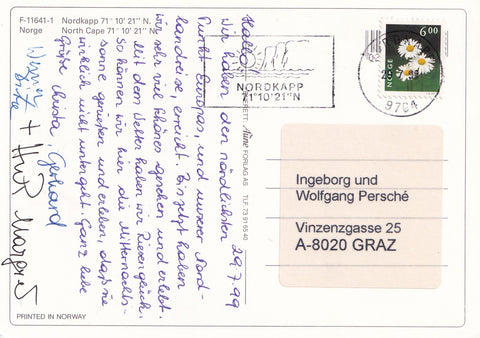 F-11641-1 Nordkapp 71° 10' 21" N.
Norge North Cape 71° 10' 21" N.
29.7.99
Hallo!
Wir haben den nördlichsten
Punkt Europas, und unserer Nord-
landreise, erreicht. Bis jetzt haben
wir sehr viel Schönes gesehen und erlebt.
Mit dem Wetter haben wir Riesenglück,
so können wir hier die Mitternachts-
sonne genießen und erleben, daß sie
wirklich nicht untergeht. Ganz liebe
Grüße Christa, Gerhard
+
Margret
NORDKAPP
71°10'21"N
NORGE
6 00
9764
FORLAG AS TLF. 73 91 65 40
Ingeborg und
Wolfgang Persché
Vinzenzgasse 25
A-8020 GRAZ
PRINTED IN NORWAY